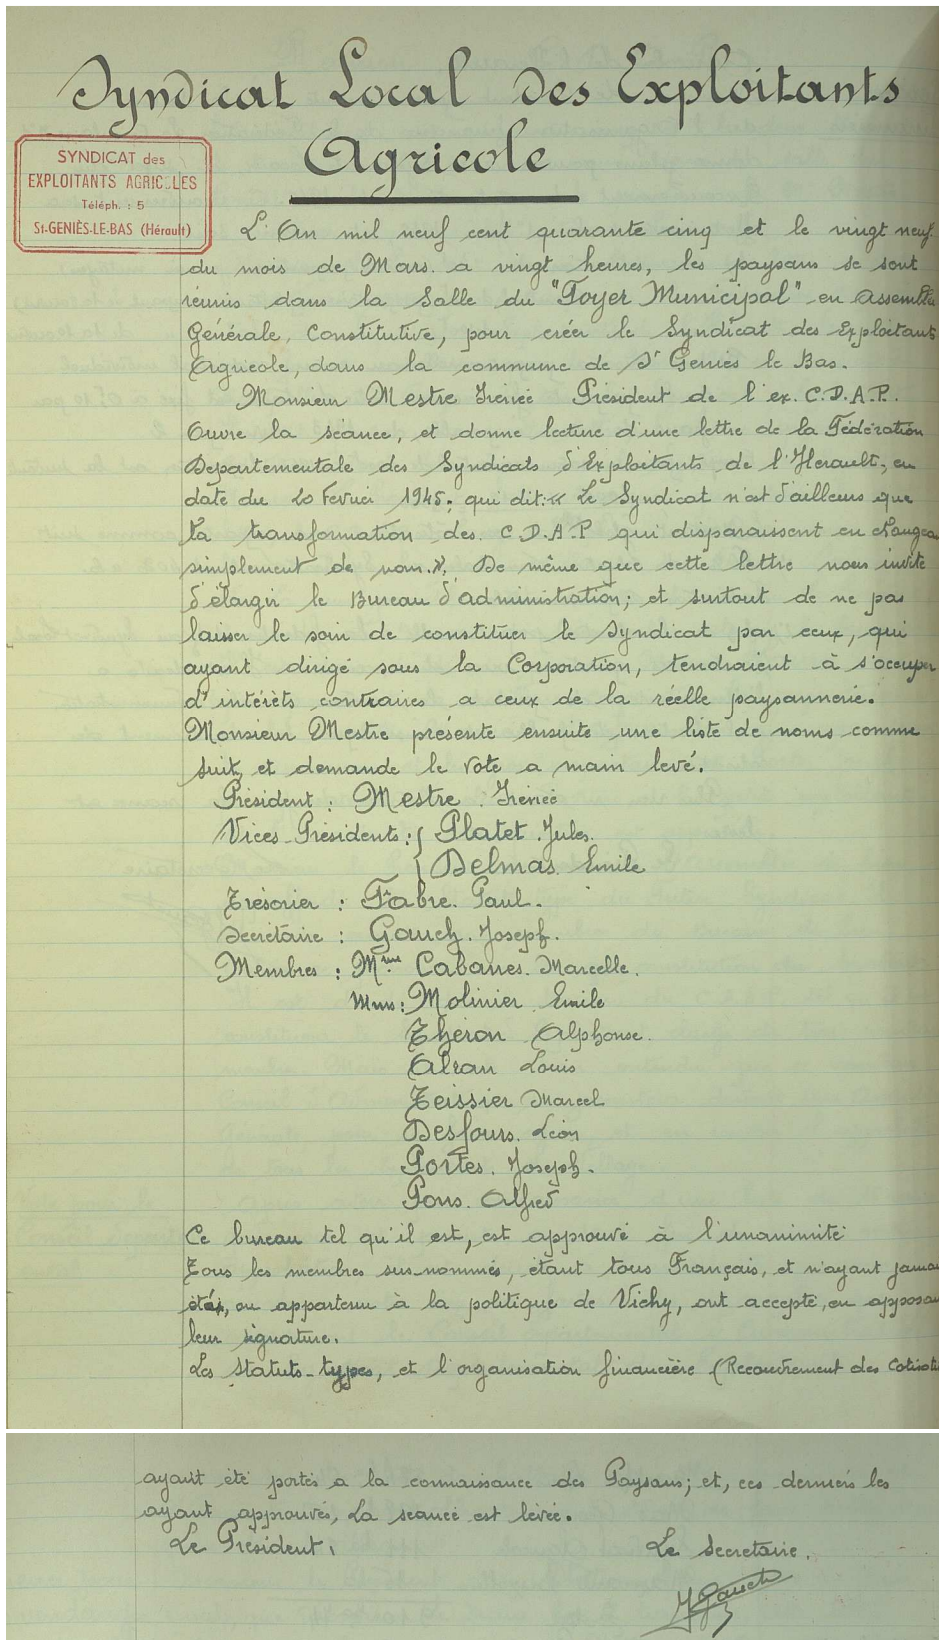 Syndicat Local des Exploitants
Agricole
SYNDICAT des
EXPLOITANTS AGRICOLES
Téléph. : 5
St-GENIÈS-LE-BAS (Hérault)
L'An mil neuf cent quarante cinq et le vingt neuf
du mois de Mars. a vingt heures, les paysans se sont
réunis dans la Salle du "Foyer Municipal" en Assemblée
Générale, Constitutive, pour créer le Syndicat des Exploitants
Agricole, dans la commune de St Geniès le Bas.
Monsieur Mestre Irénée Président de l'ex. C.D.A.P.
Ouvre la séance, et donne lecture d'une lettre de la Fédération
Départementale des Syndicats d'Exploitants de l'Herault, en
date du 20 Fevrier 1945; qui dit: « Le Syndicat n'est d'ailleurs que
la transformation des. C.D.A.P qui disparaissent en changeant
simplement de nom. ». De même que cette lettre nous invite
d'élargir le Bureau d'administration; et surtout de ne pas
laisser le soin de constituer le Syndicat par ceux, qui
ayant dirigé sous la Corporation, tendraient à s'occuper
d'intérêts contraires a ceux de la réelle paysannerie.
Monsieur Mestre présente ensuite une liste de noms comme
suit, et demande le vote a main levé.
Président : Mestre. Irénée
Vices-Présidents : { Platet. Jules.
{ Delmas. Emile
Trésorier : Fabre. Paul.
Secrétaire : Gauch. Joseph.
Membres : Mme Cabanes. Marcelle.
Mrs: Molinier Emile
Théron Alphonse.
Alran Louis
Teissier Marcel
Desfours. Léon
Portes. Joseph.
Pons. Alfred
Ce bureau tel qu'il est, est approuvé à l'unanimité
Tous les membres sus-nommés, étant tous Français, et n'ayant jamais
été, ou appartenu à la politique de Vichy, ont accepté, en apposant
leur signature.
Les Statuts-types, et l'organisation financière (Recouvrement des Cotisat
ayant été portés a la connaissance des Paysans; et, ces derniers les
ayant approuvés, La séance est levée.
Le Président, Le Secretaire.
J Gauch